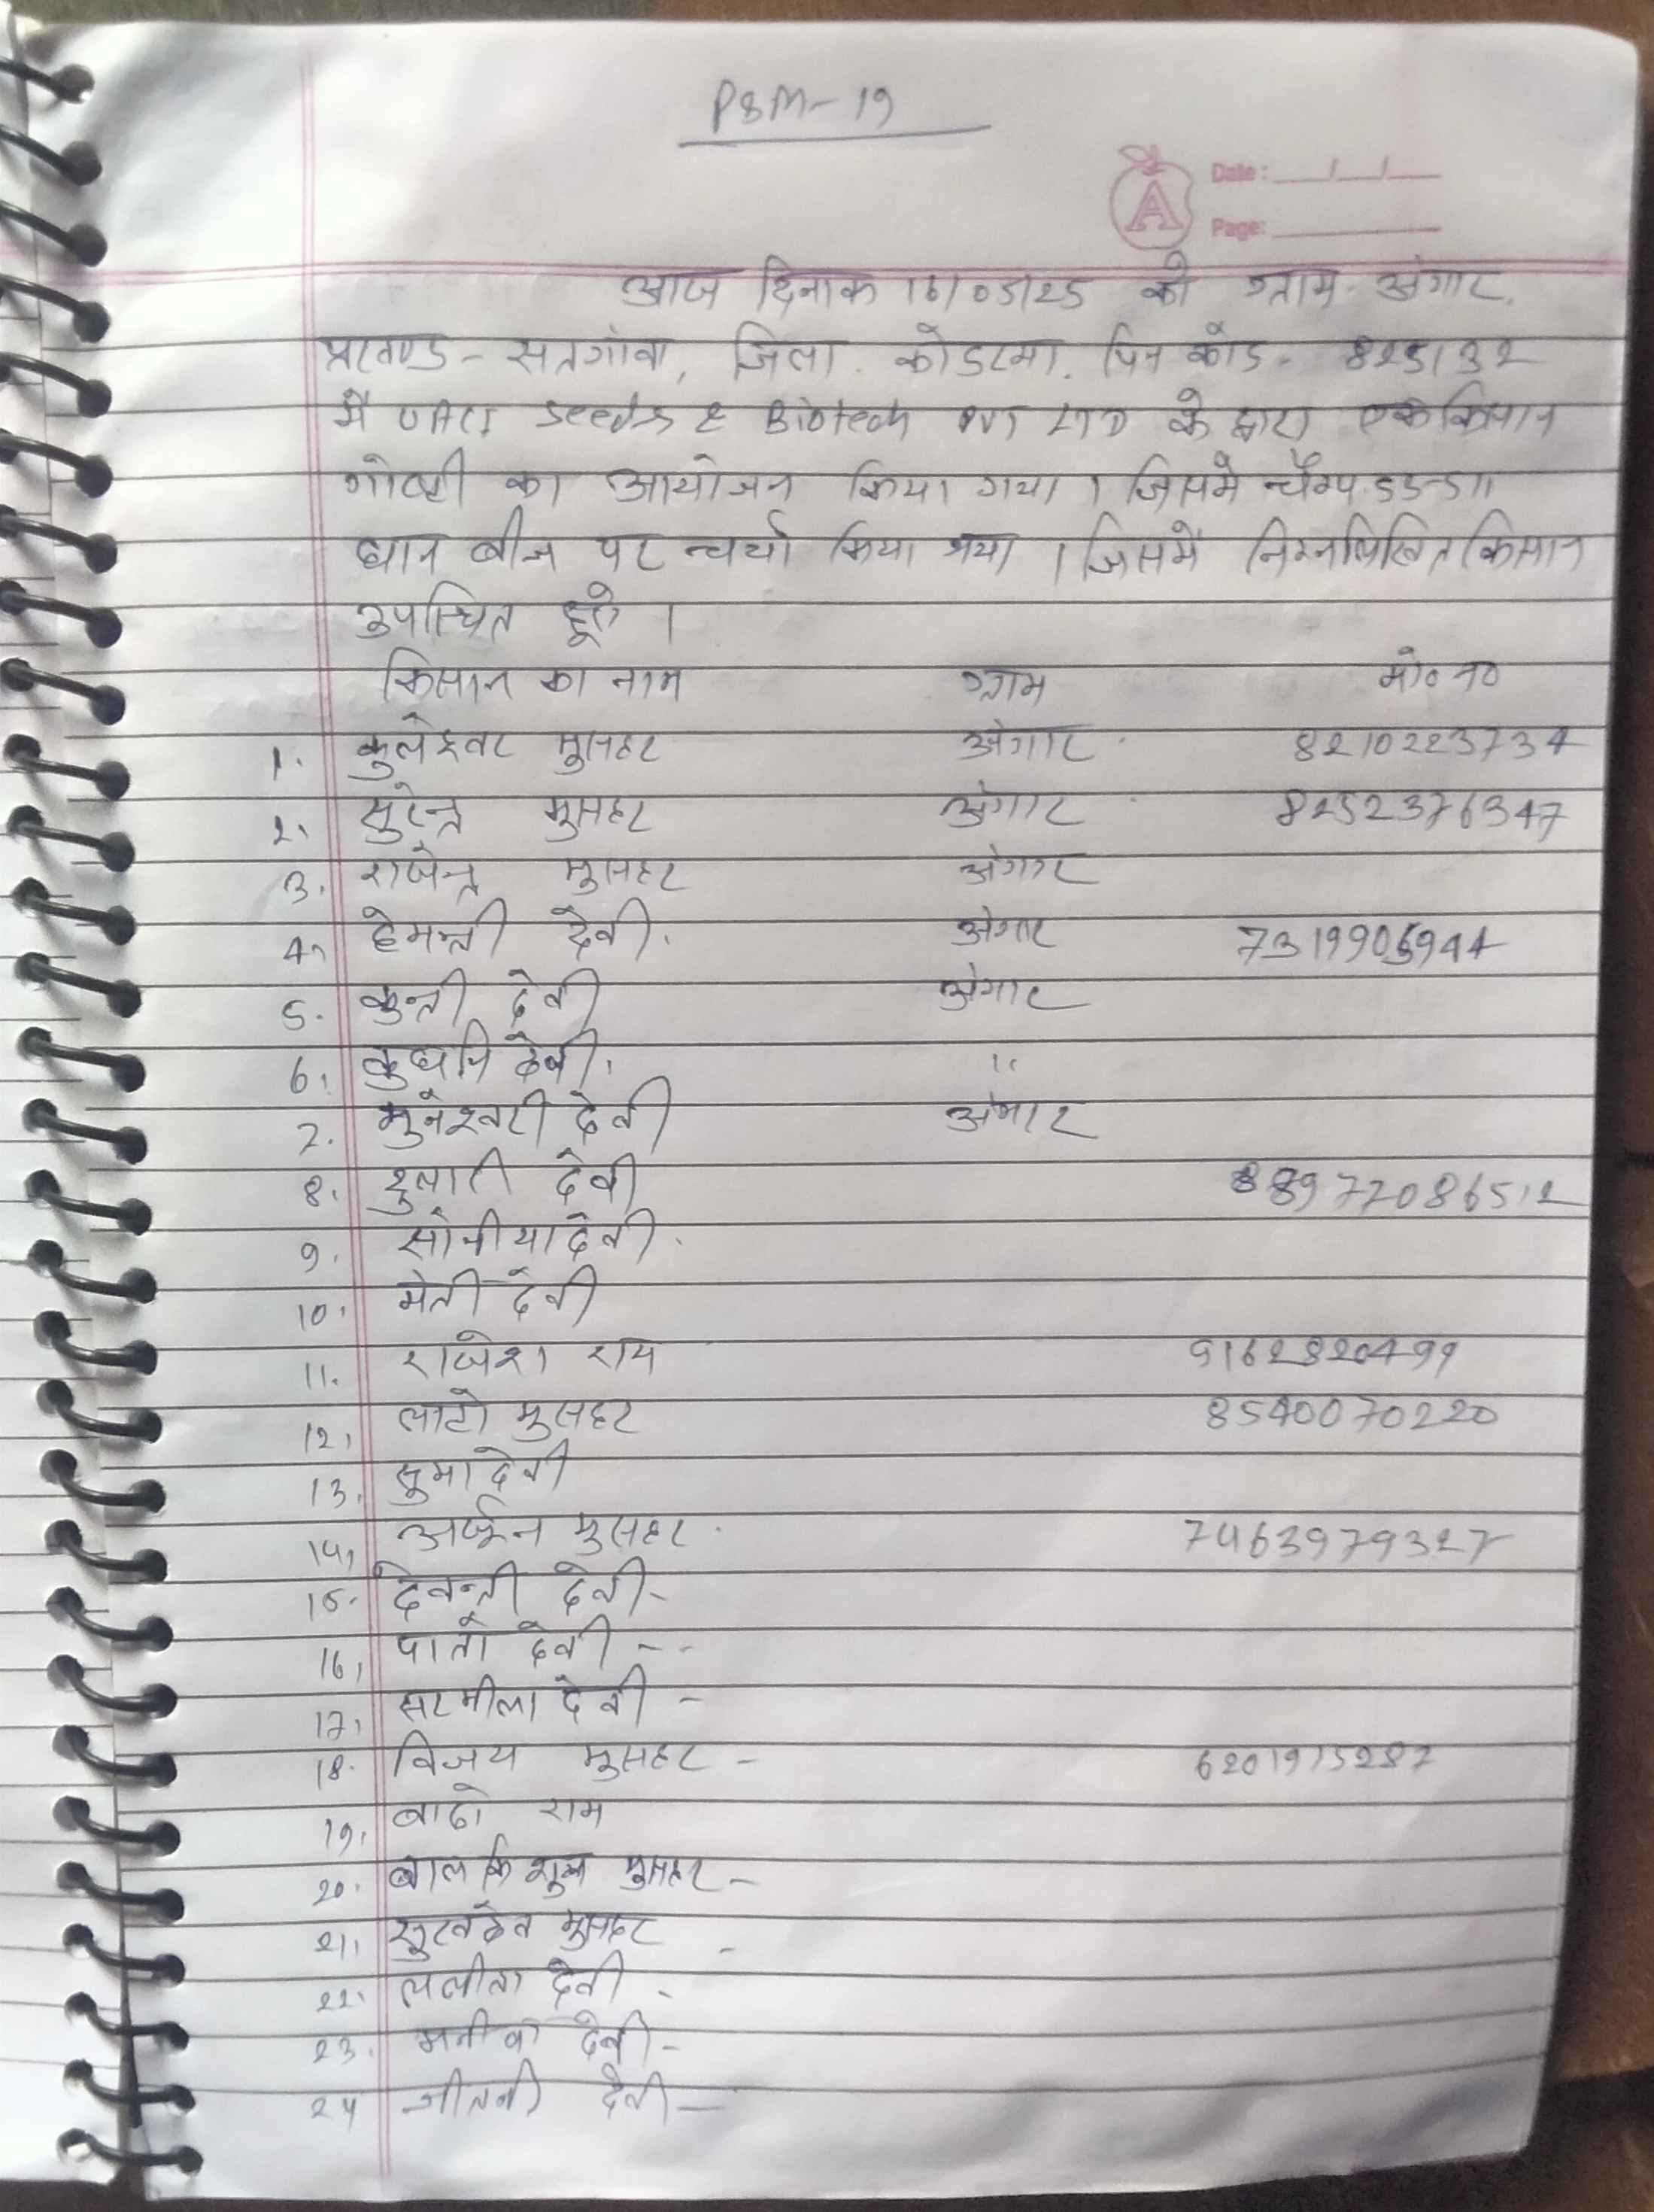 PSM-19
Date: __/__/__
Page: ______
A
आज दिनाक 16/05/25 को ग्राम- अंगार,
प्रखण्ड - सतगांवा, जिला. कोडरमा. पिन कोड- 825132
मे Seeds & Biotech PVT LTD के द्वारा एक किसान
गोष्टी का आयोजन किया गया । जिसमें चैम्प
धान बीज पर चर्चा किया गया । जिसमें निम्नलिखित किसान
उपस्थित हुऐ ।
किसान का नाम ग्राम मो० न०
1. कुलेश्वर मुसहर अंगार 8210223734
2. सुरेन्द्र मुसहर अंगार 8252376347
3. राजेन्द्र मुसहर अंगार
4. हेमन्ती देवी. अंगार 7319905944
5. कुन्ती देवी अंगार
6. देवी. ''
7. मुनेश्वरी देवी अंगार
8. दुलारी देवी 889772086512
9. सोनीया देवी.
10. मेती देवी
11. राजेश राय 9162820499
12. लाटो मुसहर 8540070220
13. सुमा देवी
14. अर्जुन मुसहर 7463979327
15. देवन्ती देवी -
16. पातो देवी --
17. सरमीला देवी -
18. विजय मुसहर - 6201975287
19. बाढो राम
20. मुसहर -
21. मुसहर -
22. ललीता देवी -
23. देवी -
24 जीतनी देवी -